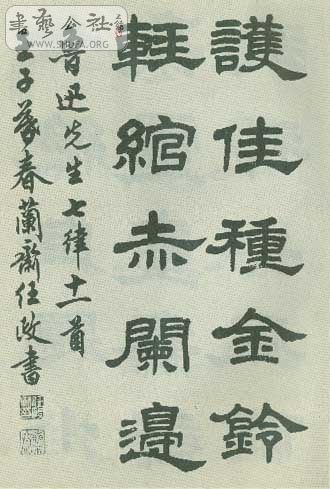 書藝公社
WWW.SHUFA.ORG
護佳種金鈴
輕綰赤闌邊
魯迅先生七律十一首
壬子暮春蘭齋任政書